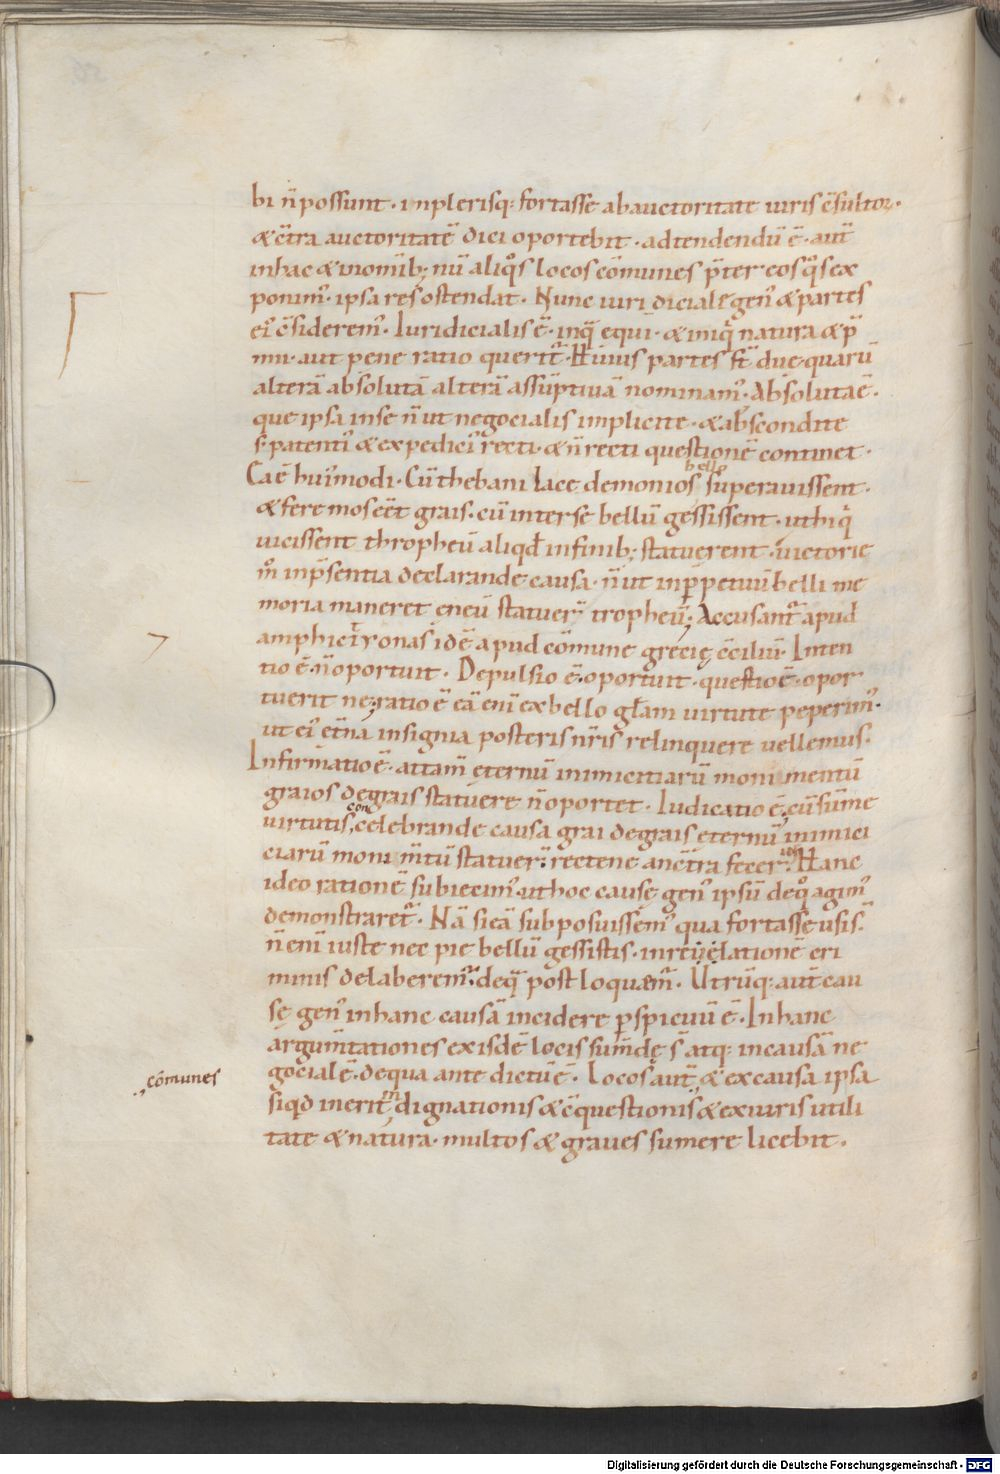 bi n̄ possunt · inplerisq: fortasse ab auctoritate iuris c̄sultoꝝ ·
& c̄tra auctoritatē dici oportebit · adtendendū ē · aut̄
in hac & in omīb; nū aliq̊s locos cōmunes p̄ter eos q̊s ex
ponim᾽ · ipsa res ostendat · Nunc iuridicialē gen᾽ & partes
ei᾽ c̄siderem᾽ · Iuridicialis ē · inq̄ equi · & iniq̄ natura & p̄
mii · aut pene ratio querit᷑ · Huius partes s̄t due quarū
alterā absolutā alterā assūptivā nominam᾽ · Absoluta ē ·
que ipsa in se n̄ ut negocialis implicite · & abscondite
s· patenti᾽ & expedici᾽ recti · & n̄ recti questionē continet ·
Ca ē hui᾽modi · Cū thebani lacedemonios bello superavissent ·
& fere mos eēt grais · cū inter se bellū gessissent · ut hi q̄
vicissent thropheū aliqđ in finib; statuerent · victorie
m̊ in p̄sentia declarande causa · n̄ ut in ꝑpetuū belli me
moria maneret eneū statuer̄ tropheū; Accusant᷑ apud
amphictyonas idē apud cōmune grecię c̄ciliū · Inten
tio ē · n̄ oportuit · Depulsio ē · oportuit · questio ē · opor
tuerit ne; ratio ē eā enī ex bello gl̄am virtute peperim᾽ ·
ut ei᾽ et̄na insignia posteris nr̄is relinquere vellemus ·
Infirmatio ē · attam̄ eternū inimicitiarū monimentū
graios de grais statuere n̄ oportet · Iudicatio ē; cū sūme
virtutis con celebrande causa grai de grais eternū inimici
ciarū monim̄tū statuer̄: rectene an c̄tra fecer̄: Hanc
ideo rationē subiecim᾽ · ut hoc causę gen᾽ ipsū de q̊ agim᾽
demonstraret᷑ · Nā si eā subposuissem᾽ qua fortasse usi s̄:
n̄ enī iuste nec pie bellū gessistis · in relationē cri
minis delaberem᷑: de q̄ post loquam᷑ · Utrūq: aut̄ cau
sę gen᾽ in hanc causā incidere ꝑspicuū ē · In hanc
argum̄tationes ex isdē locis sum̄dę s̄ atq: in causā ne
gocialē · de qua ante dictū ē · Locos aut̄ & ex causa ipsa
cōmunes
siqđ inerit in dignationis & c̄questionis & ex iuris utili
tate & natura · multos & graves sumere licebit ·
Digitalisierung gefördert durch die Deutsche Forschungsgemeinschaft - DFG